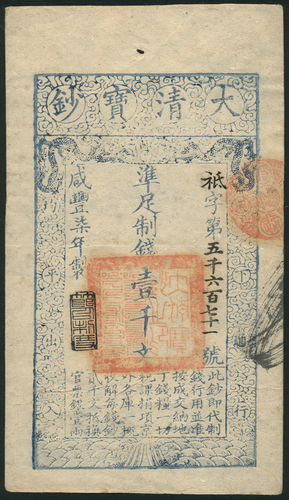 大清寶鈔
天下通行
祗字第五千六百七十一號
準足制錢壹千文
咸豐柒年製
均平出入
此鈔即代制
錢行用並准
按成交納地
丁錢糧一切
稅課捐項京
外各庫一概
收解每錢鈔
貳千文抵換
官票銀壹兩